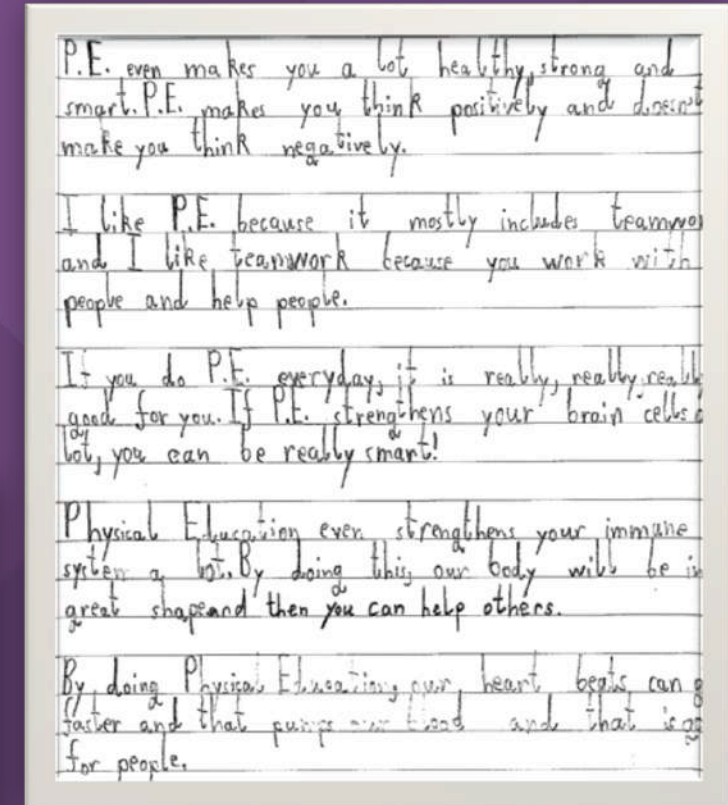 P.E. even makes you a lot healthy, strong and
smart. P.E. makes you think positively and doesn't
make you think negatively.
I like P.E. because it mostly includes teamwo
and I like teamwork because you work with
people and help people.
If you do P.E. everyday, it is really, really, reall
good for you. If P.E. strengthens your brain cells a
lot, you can be really smart!
Physical Education even strengthens your immune
system a lot. By doing this, our body will be in
great shape and then you can help others.
By doing Physical Education, our heart beats can g
faster and that pumps our blood and that is go
for people.